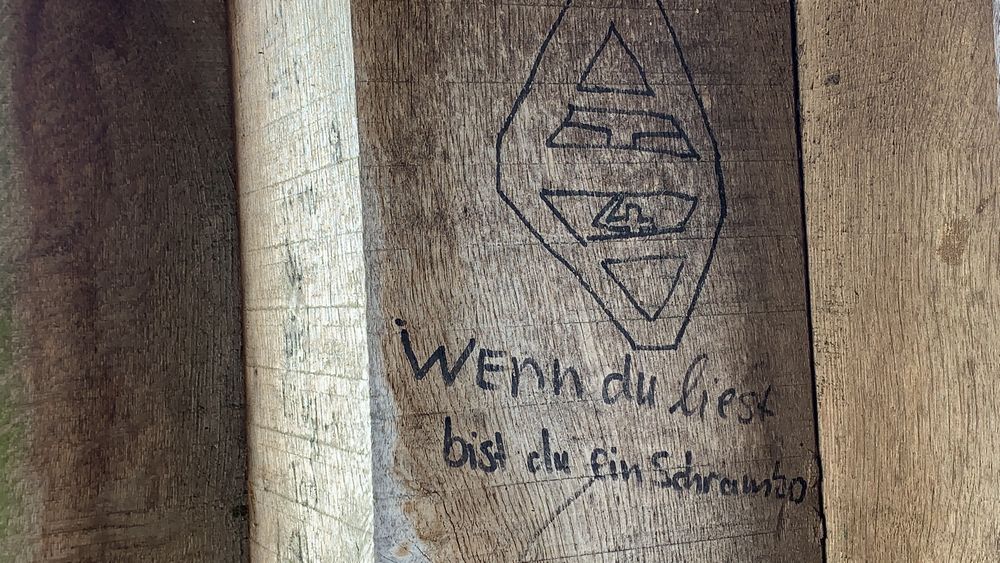 WEnn du liest
bist du Ein Schrambo